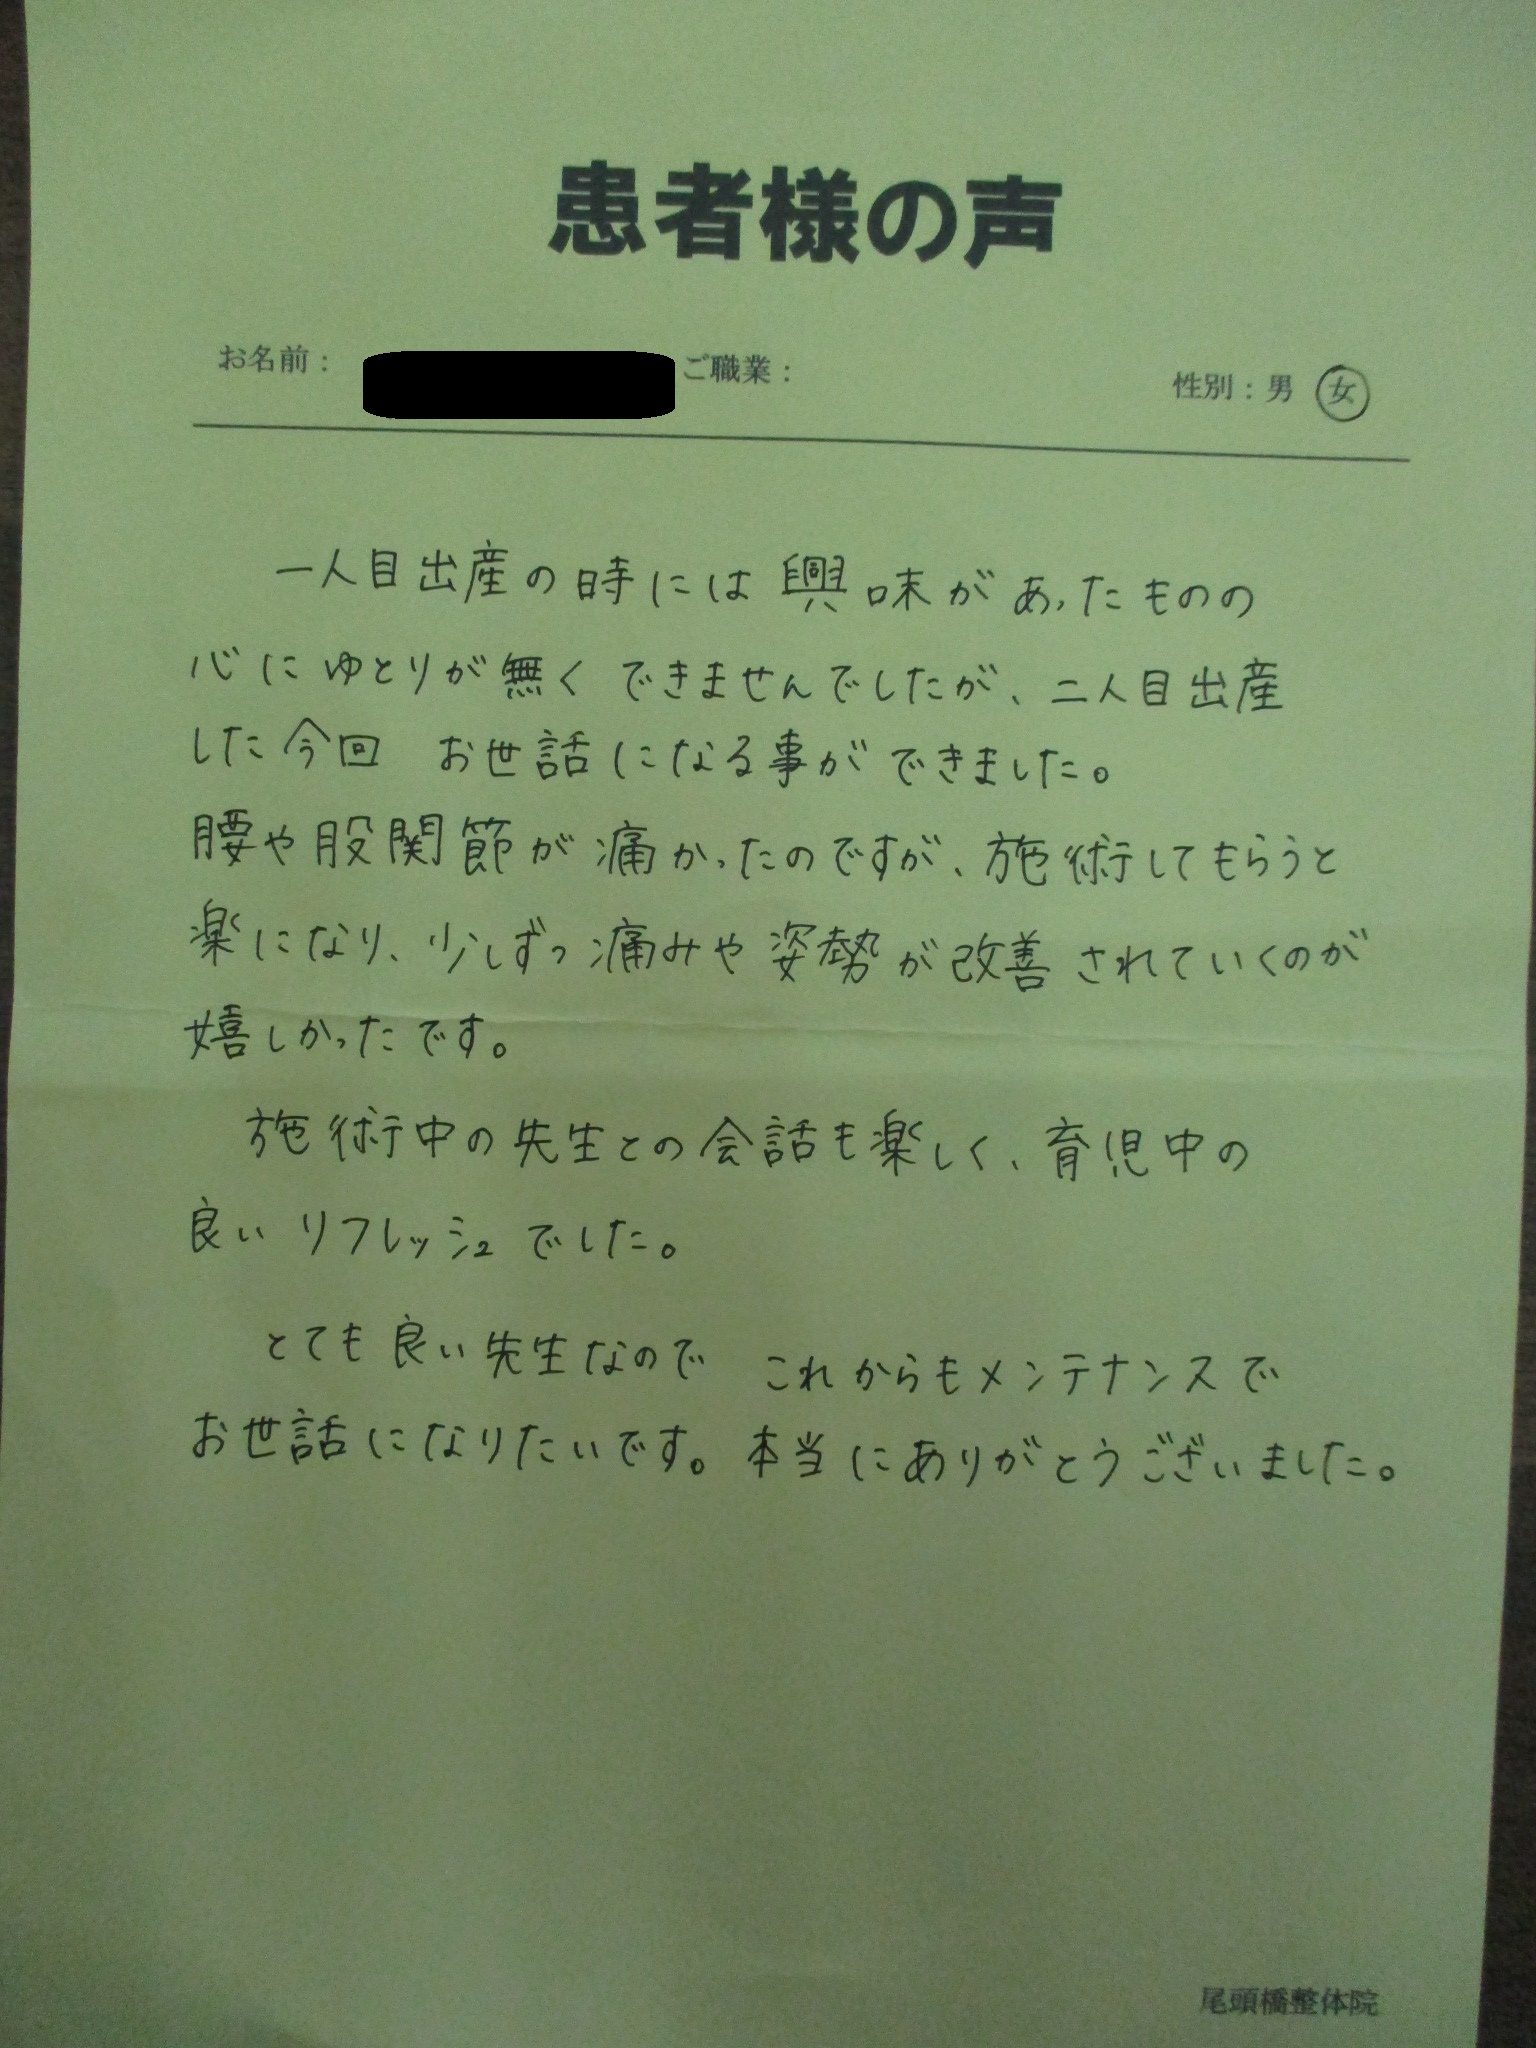 患者様の声
お名前： ご職業： 性別：男 女
一人目出産の時には興味があったものの
心にゆとりが無くできませんでしたが、二人目出産
した今回 お世話になる事ができました。
腰や股関節が痛かったのですが、施術してもらうと
楽になり、少しずつ痛みや姿勢が改善されていくのが
嬉しかったです。
施術中の先生との会話も楽しく、育児中の
良いリフレッシュでした。
とても良い先生なので これからもメンテナンスで
お世話になりたいです。本当にありがとうございました。
尾頭橋整体院